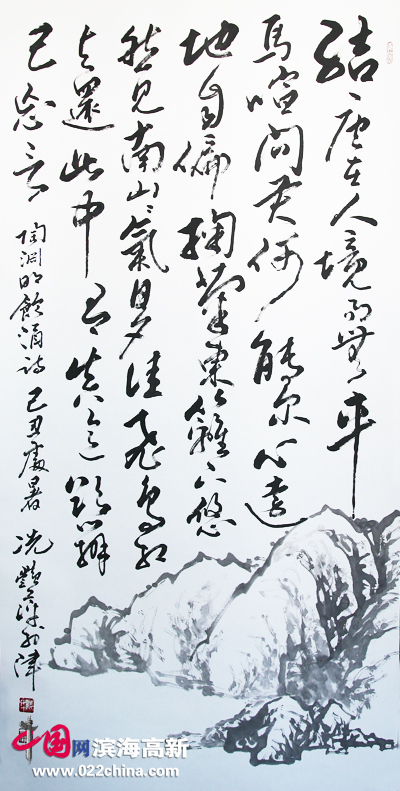 結廬在人境而無車
馬喧問君何能尔心遠
地自偏掬菊東籬下悠
然見南山々氣日夕佳飛鳥相
与還此中有真意欲辨
已忘言 陶淵明飲酒詩 己丑處暑 冼艷 津
中国网滨海高新
www.022china.com